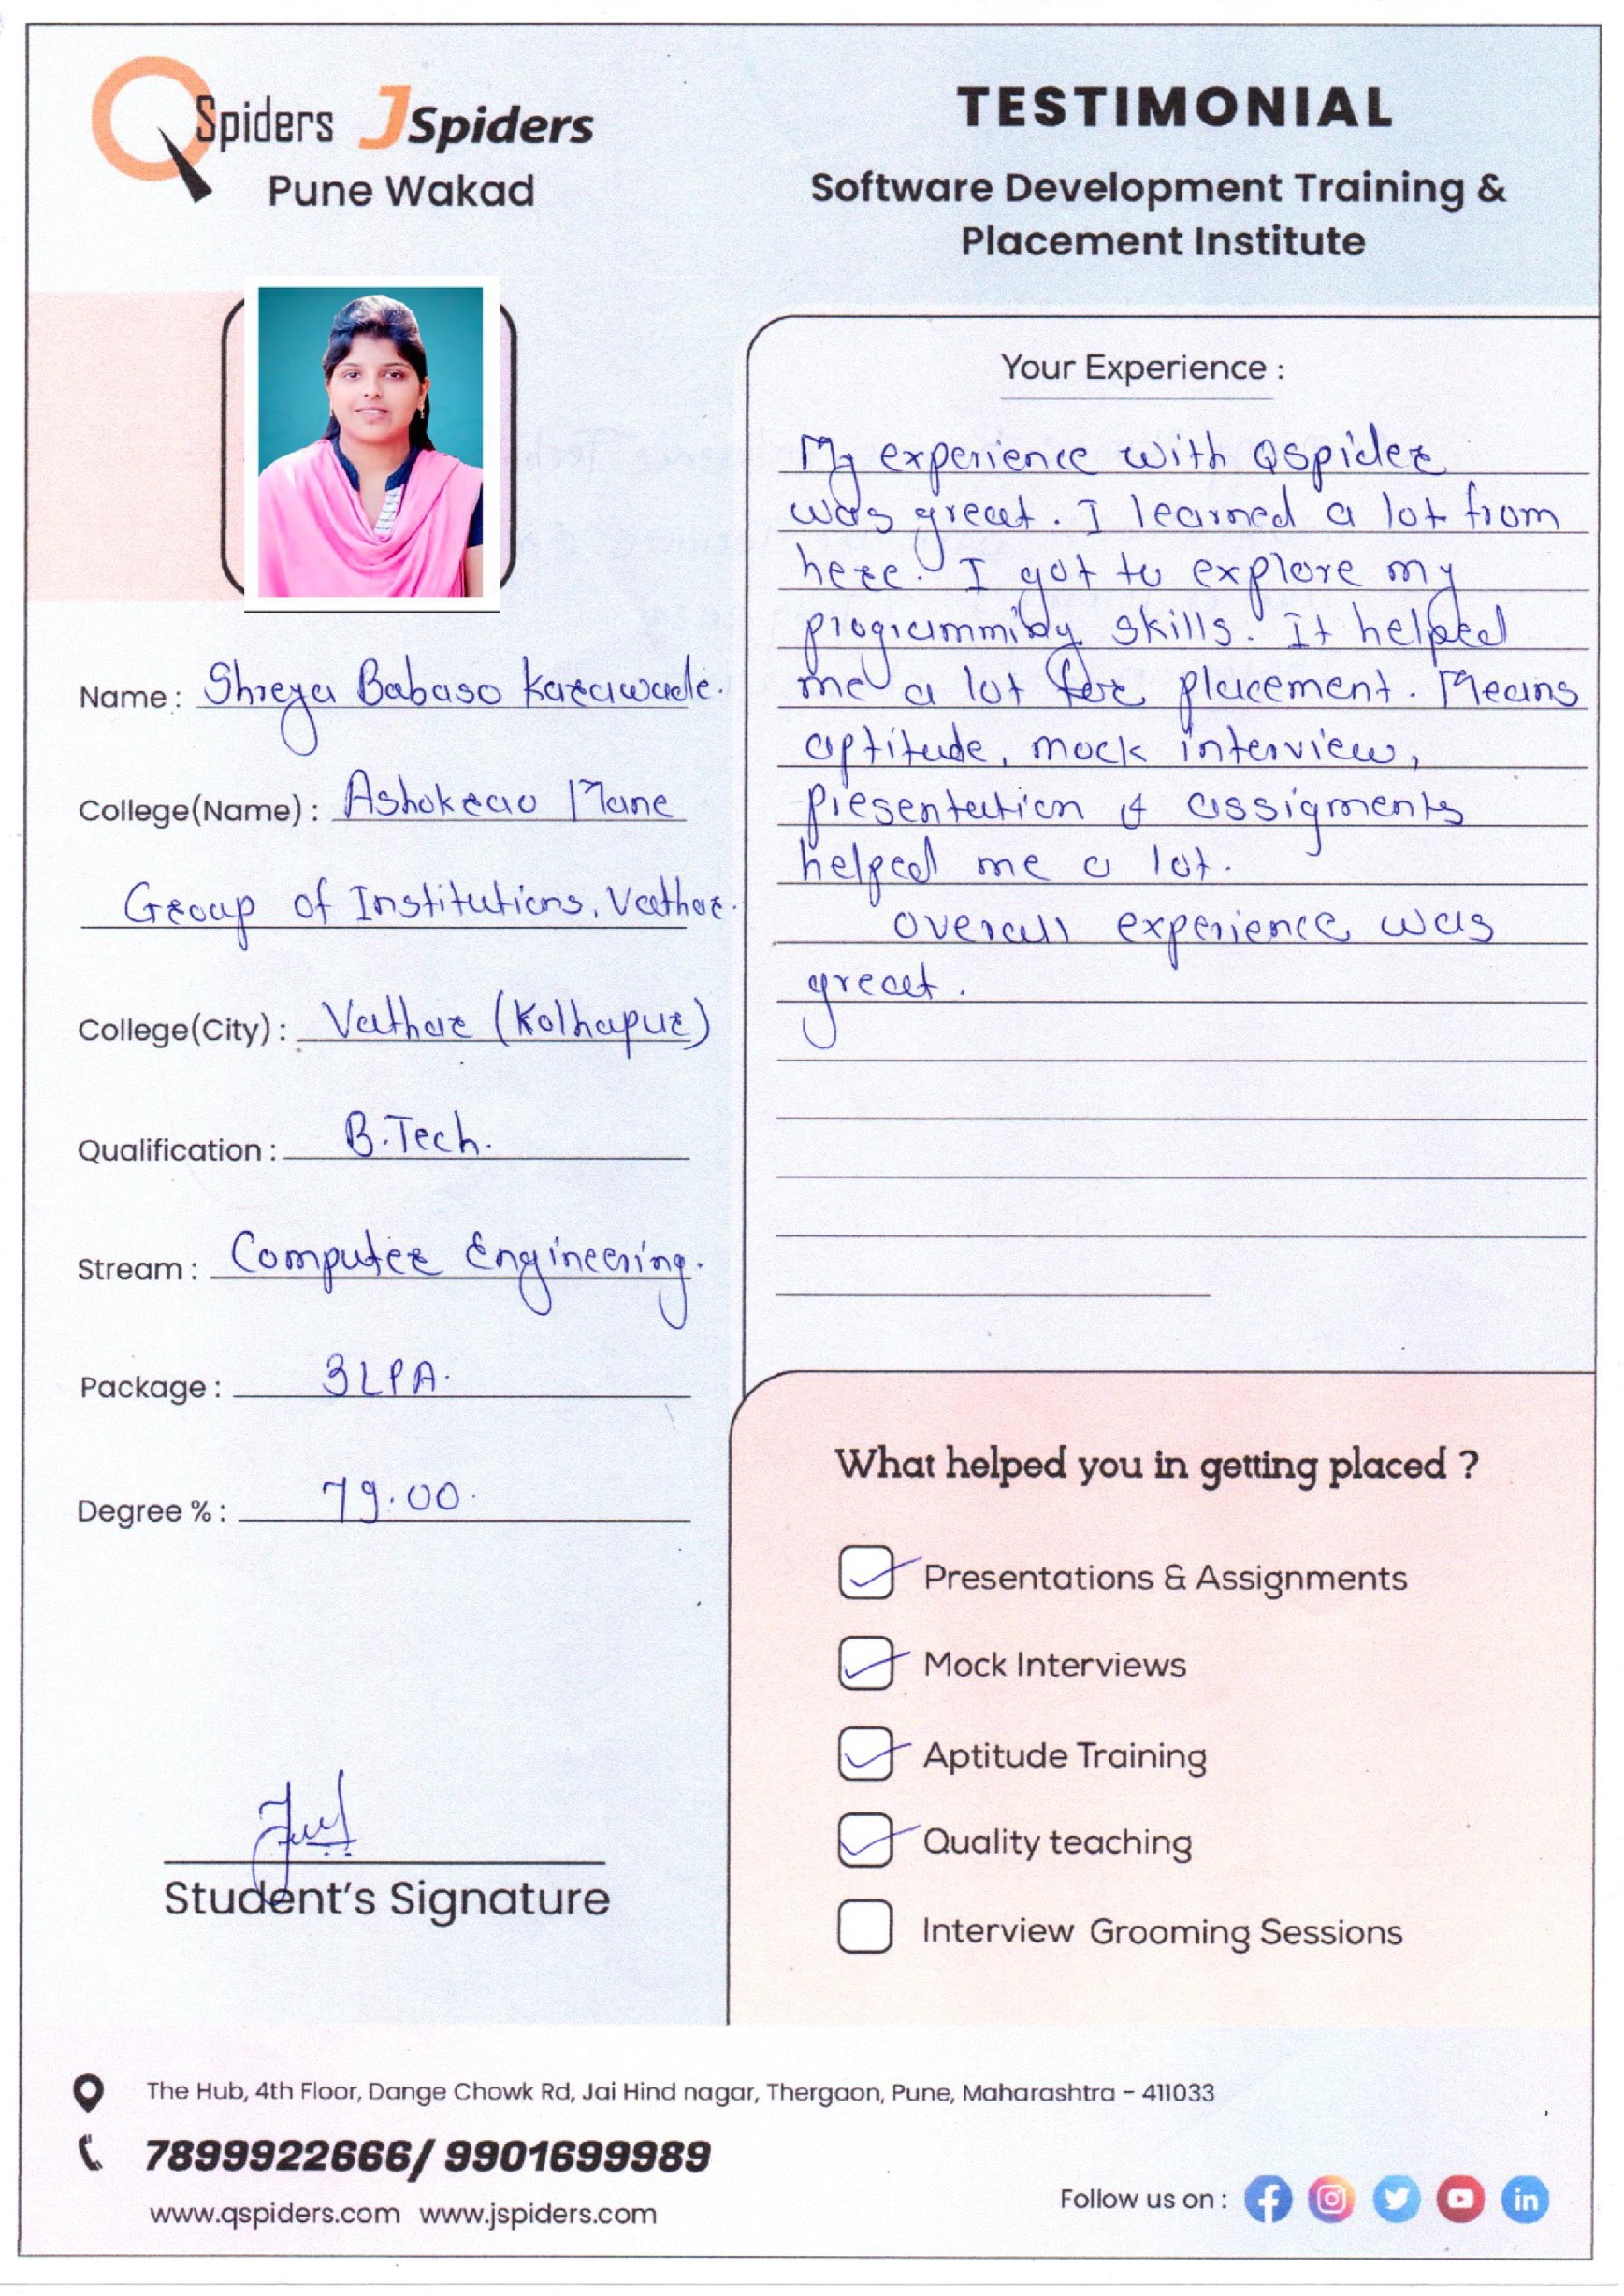 QSpiders JSpiders
Pune Wakad
TESTIMONIAL
Software Development Training &
Placement Institute
Name : Shreya Babaso Karawade.
College(Name) : Ashokrao Mane
Group of Institutions, Vathar.
College(City) : Vathar (Kolhapur)
Qualification : B.Tech.
Stream : Computer Engineering.
Package : 3LPA.
Degree % : 79.00.
Student's Signature
Your Experience :
My experience with Qspider
was great. I learned a lot from
here. I got to explore my
programming skills. It helped
me a lot for placement. Means
aptitude, mock interview,
presentation & assigments
helped me a lot.
overall experience was
great.
What helped you in getting placed ?
Presentations & Assignments
Mock Interviews
Aptitude Training
Quality teaching
Interview Grooming Sessions
The Hub, 4th Floor, Dange Chowk Rd, Jai Hind nagar, Thergaon, Pune, Maharashtra - 411033
7899922666/ 9901699989
www.qspiders.com www.jspiders.com
Follow us on :